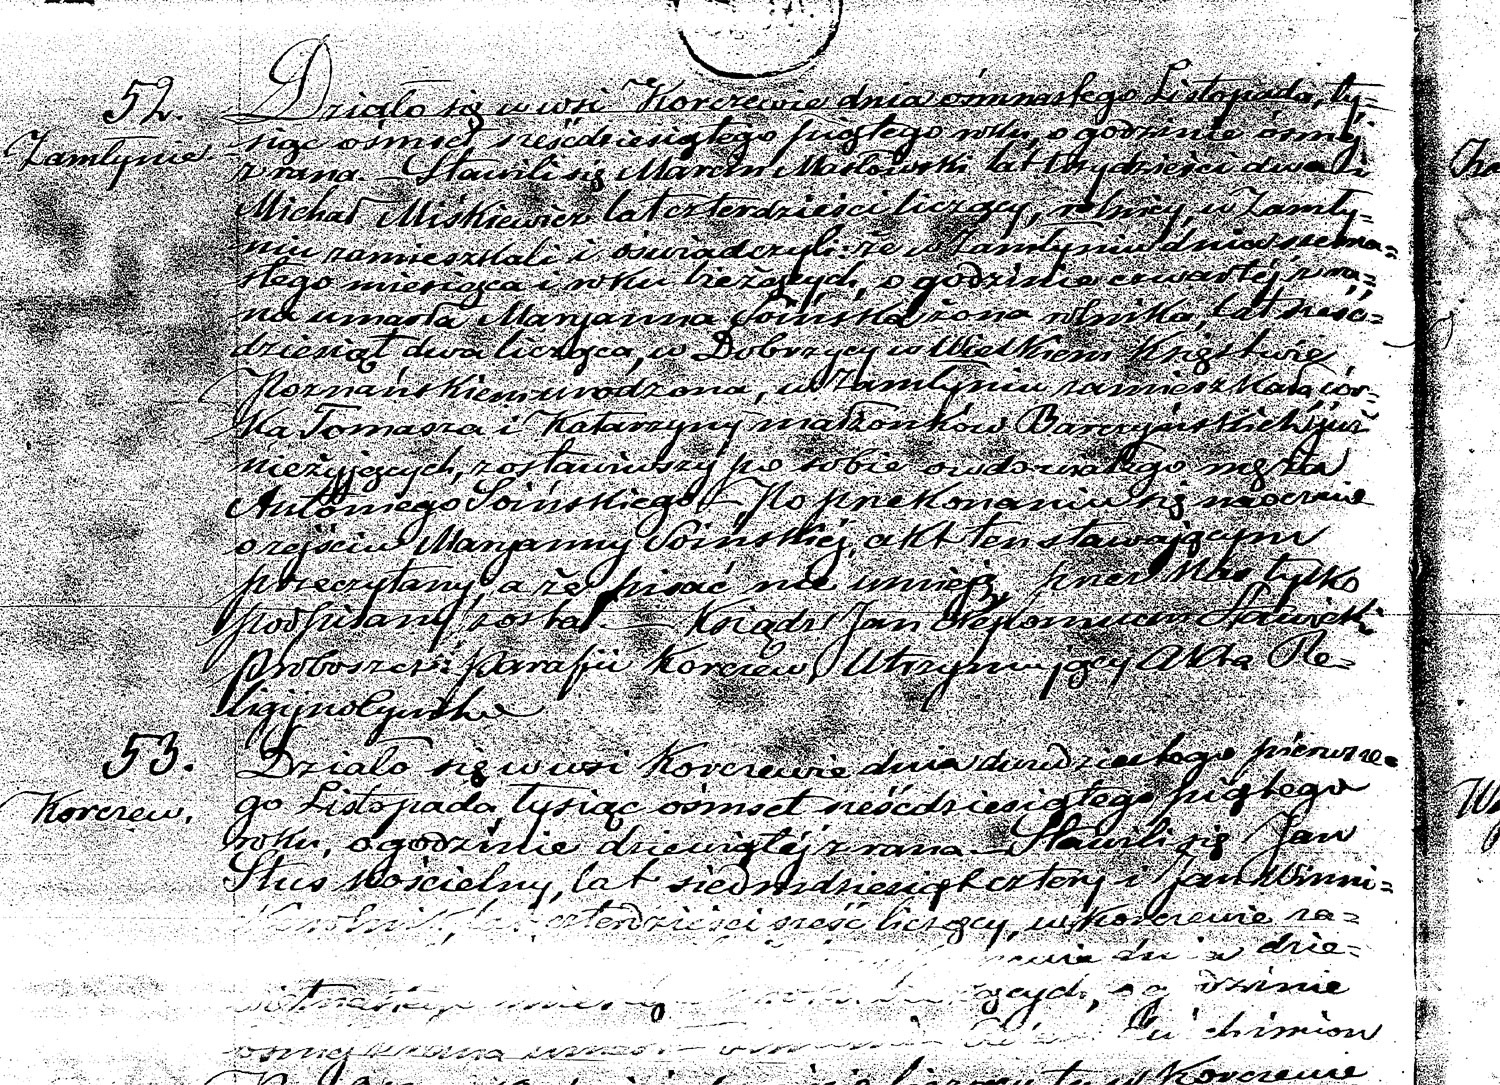 52.
Zamłynie.
Działo się w wsi Korczewie dnia ósmnastego Listopada, ty-
siąc ośmset sześćdziesiątego piątego roku, o godzinie ósmej
z rana. — Stawili się Marcin Masłowski lat trzydzieści dwa i
Michał Miśkiewicz lat czterdzieści liczący, rolnicy, w Zamły-
niu zamieszkali i oświadczyli: że w Zamłyniu dnia szesna-
stego miesiąca i roku bieżących, o godzinie czwartej z ra-
na umarła Maryanna Soińska żona rolnika, lat sześć-
dziesiąt dwa licząca, w Dobrzycy w Wielkiem Księstwie
Poznańskiem urodzona, w Zamłyniu zamieszkała, cór-
ka Tomasza i Katarzyny małżonków Barczyńskich już
nieżyjących, zostawiwszy po sobie owdowiałego męża
Antoniego Soińskiego. — Po przekonaniu się naocznie
o zejściu Maryanny Soińskiej, akt ten stawającym
przeczytany, a że pisać nie umieją, przez Nas tylko
podpisany został. — Ksiądz Jan Nepomucen
Proboszcz parafii Korczew, Utrzymujący Akta Re-
ligijno Cywilne
53.
Korczew.
Działo się w wsi Korczewie dnia dwudziestego pierwsze-
go Listopada, tysiąc ośmset sześćdziesiątego piątego
roku, o godzinie dziewiątej z rana. — Stawili się Jan
Stus kościelny, lat siedmdziesiąt cztery i Jan Winni-
czterdzieści sześć liczący, w Korczewie za-
dnia dzie-
o godzinie
Korczewie